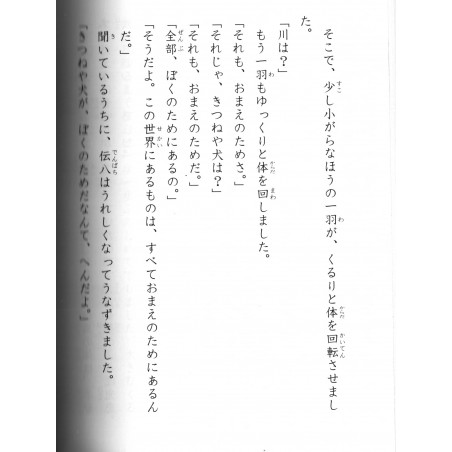 そこで、少し小がらなほうの一羽が、くるりと体を回転させまし
た。
「川は？」
もう一羽もゆっくりと体を回しました。
「それも、おまえのためさ。」
「それじゃ、きつねや犬は？」
「それも、おまえのためだ。」
「全部、ぼくのためにあるの。」
「そうだよ。この世界にあるものは、すべておまえのためにあるん
だ。」
聞いているうちに、伝八はうれしくなってうなずきました。
「きつねや犬が、ぼくのためだなんて、へんだよ。」